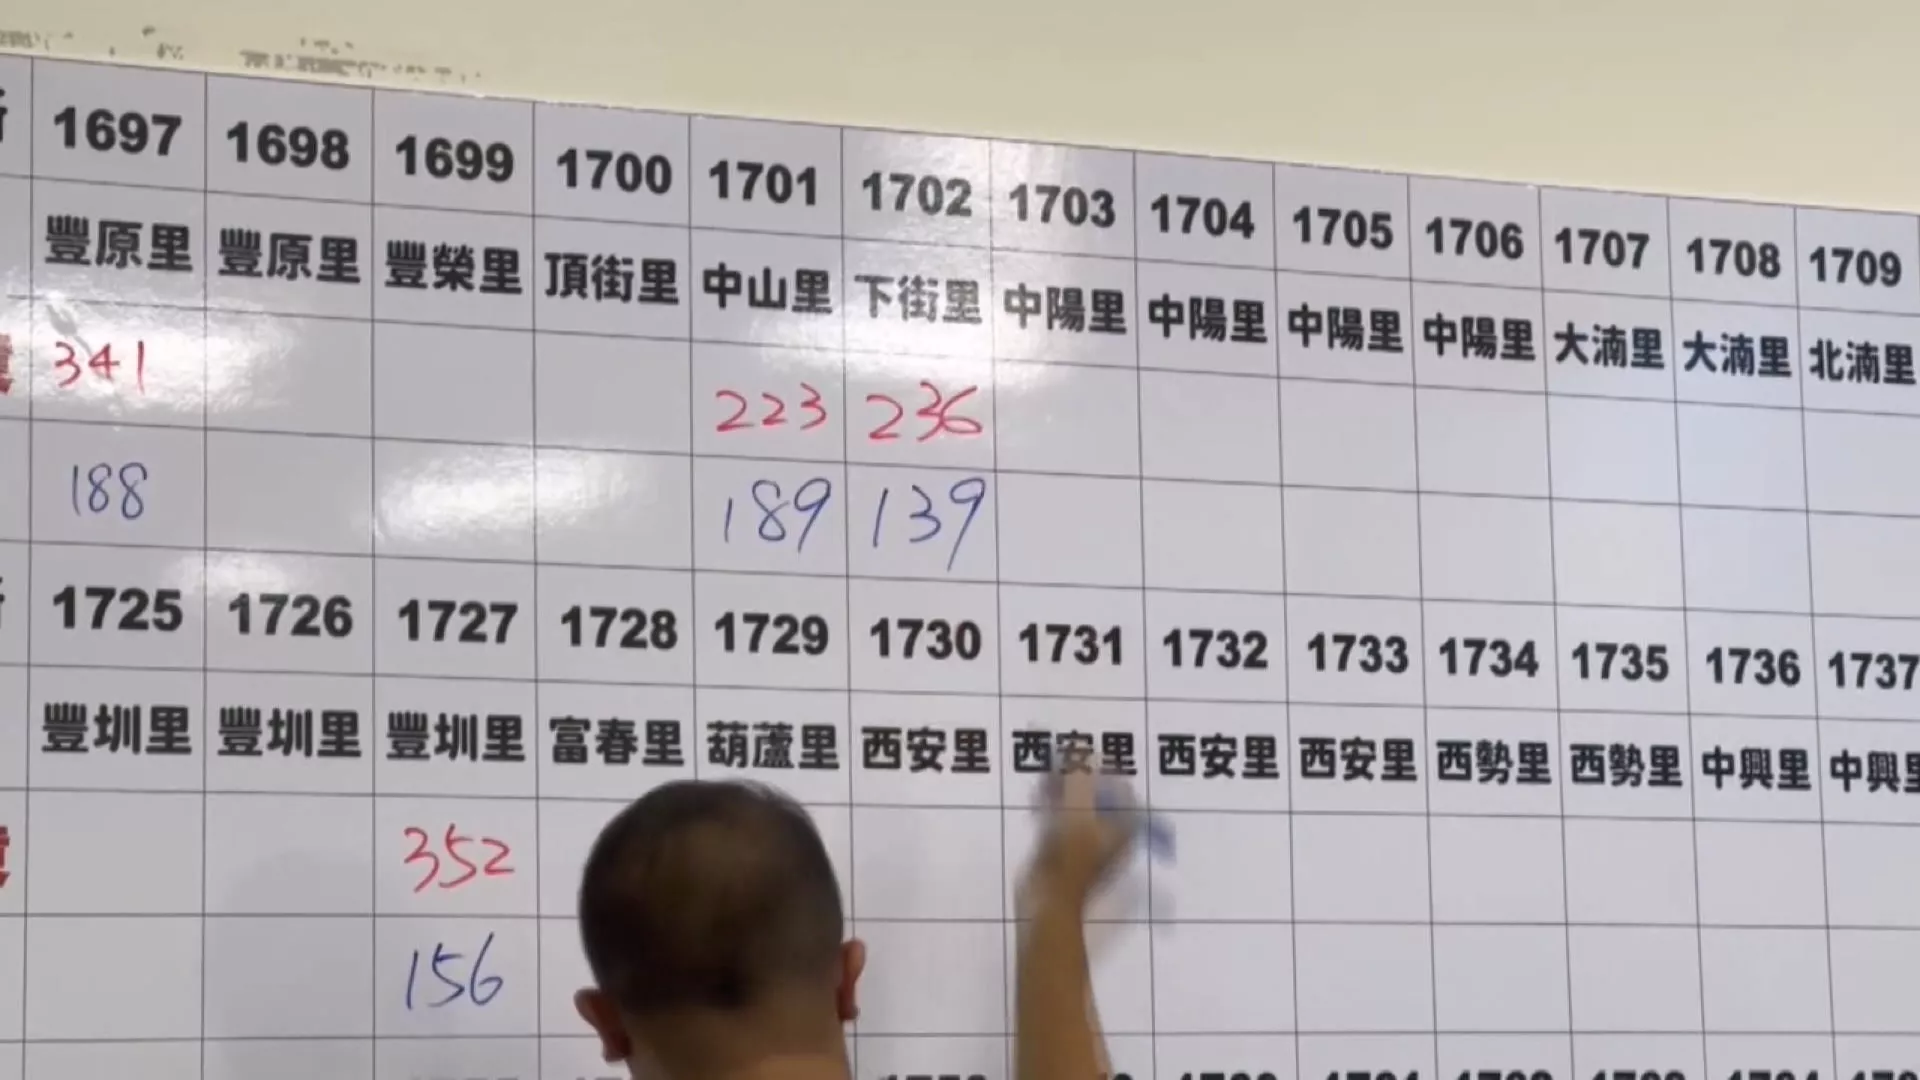 1697 1698 1699 1700 1701 1702 1703 1704 1705 1706 1707 1708 1709
豐原里 豐原里 豐榮里 頂街里 中山里 下街里 中陽里 中陽里 中陽里 中陽里 大湳里 大湳里 北湳里
341 223 236
188 189 139
1725 1726 1727 1728 1729 1730 1731 1732 1733 1734 1735 1736 1737
豐圳里 豐圳里 豐圳里 富春里 葫蘆里 西安里 西安里 西安里 西安里 西勢里 西勢里 中興里 中興里
352
156